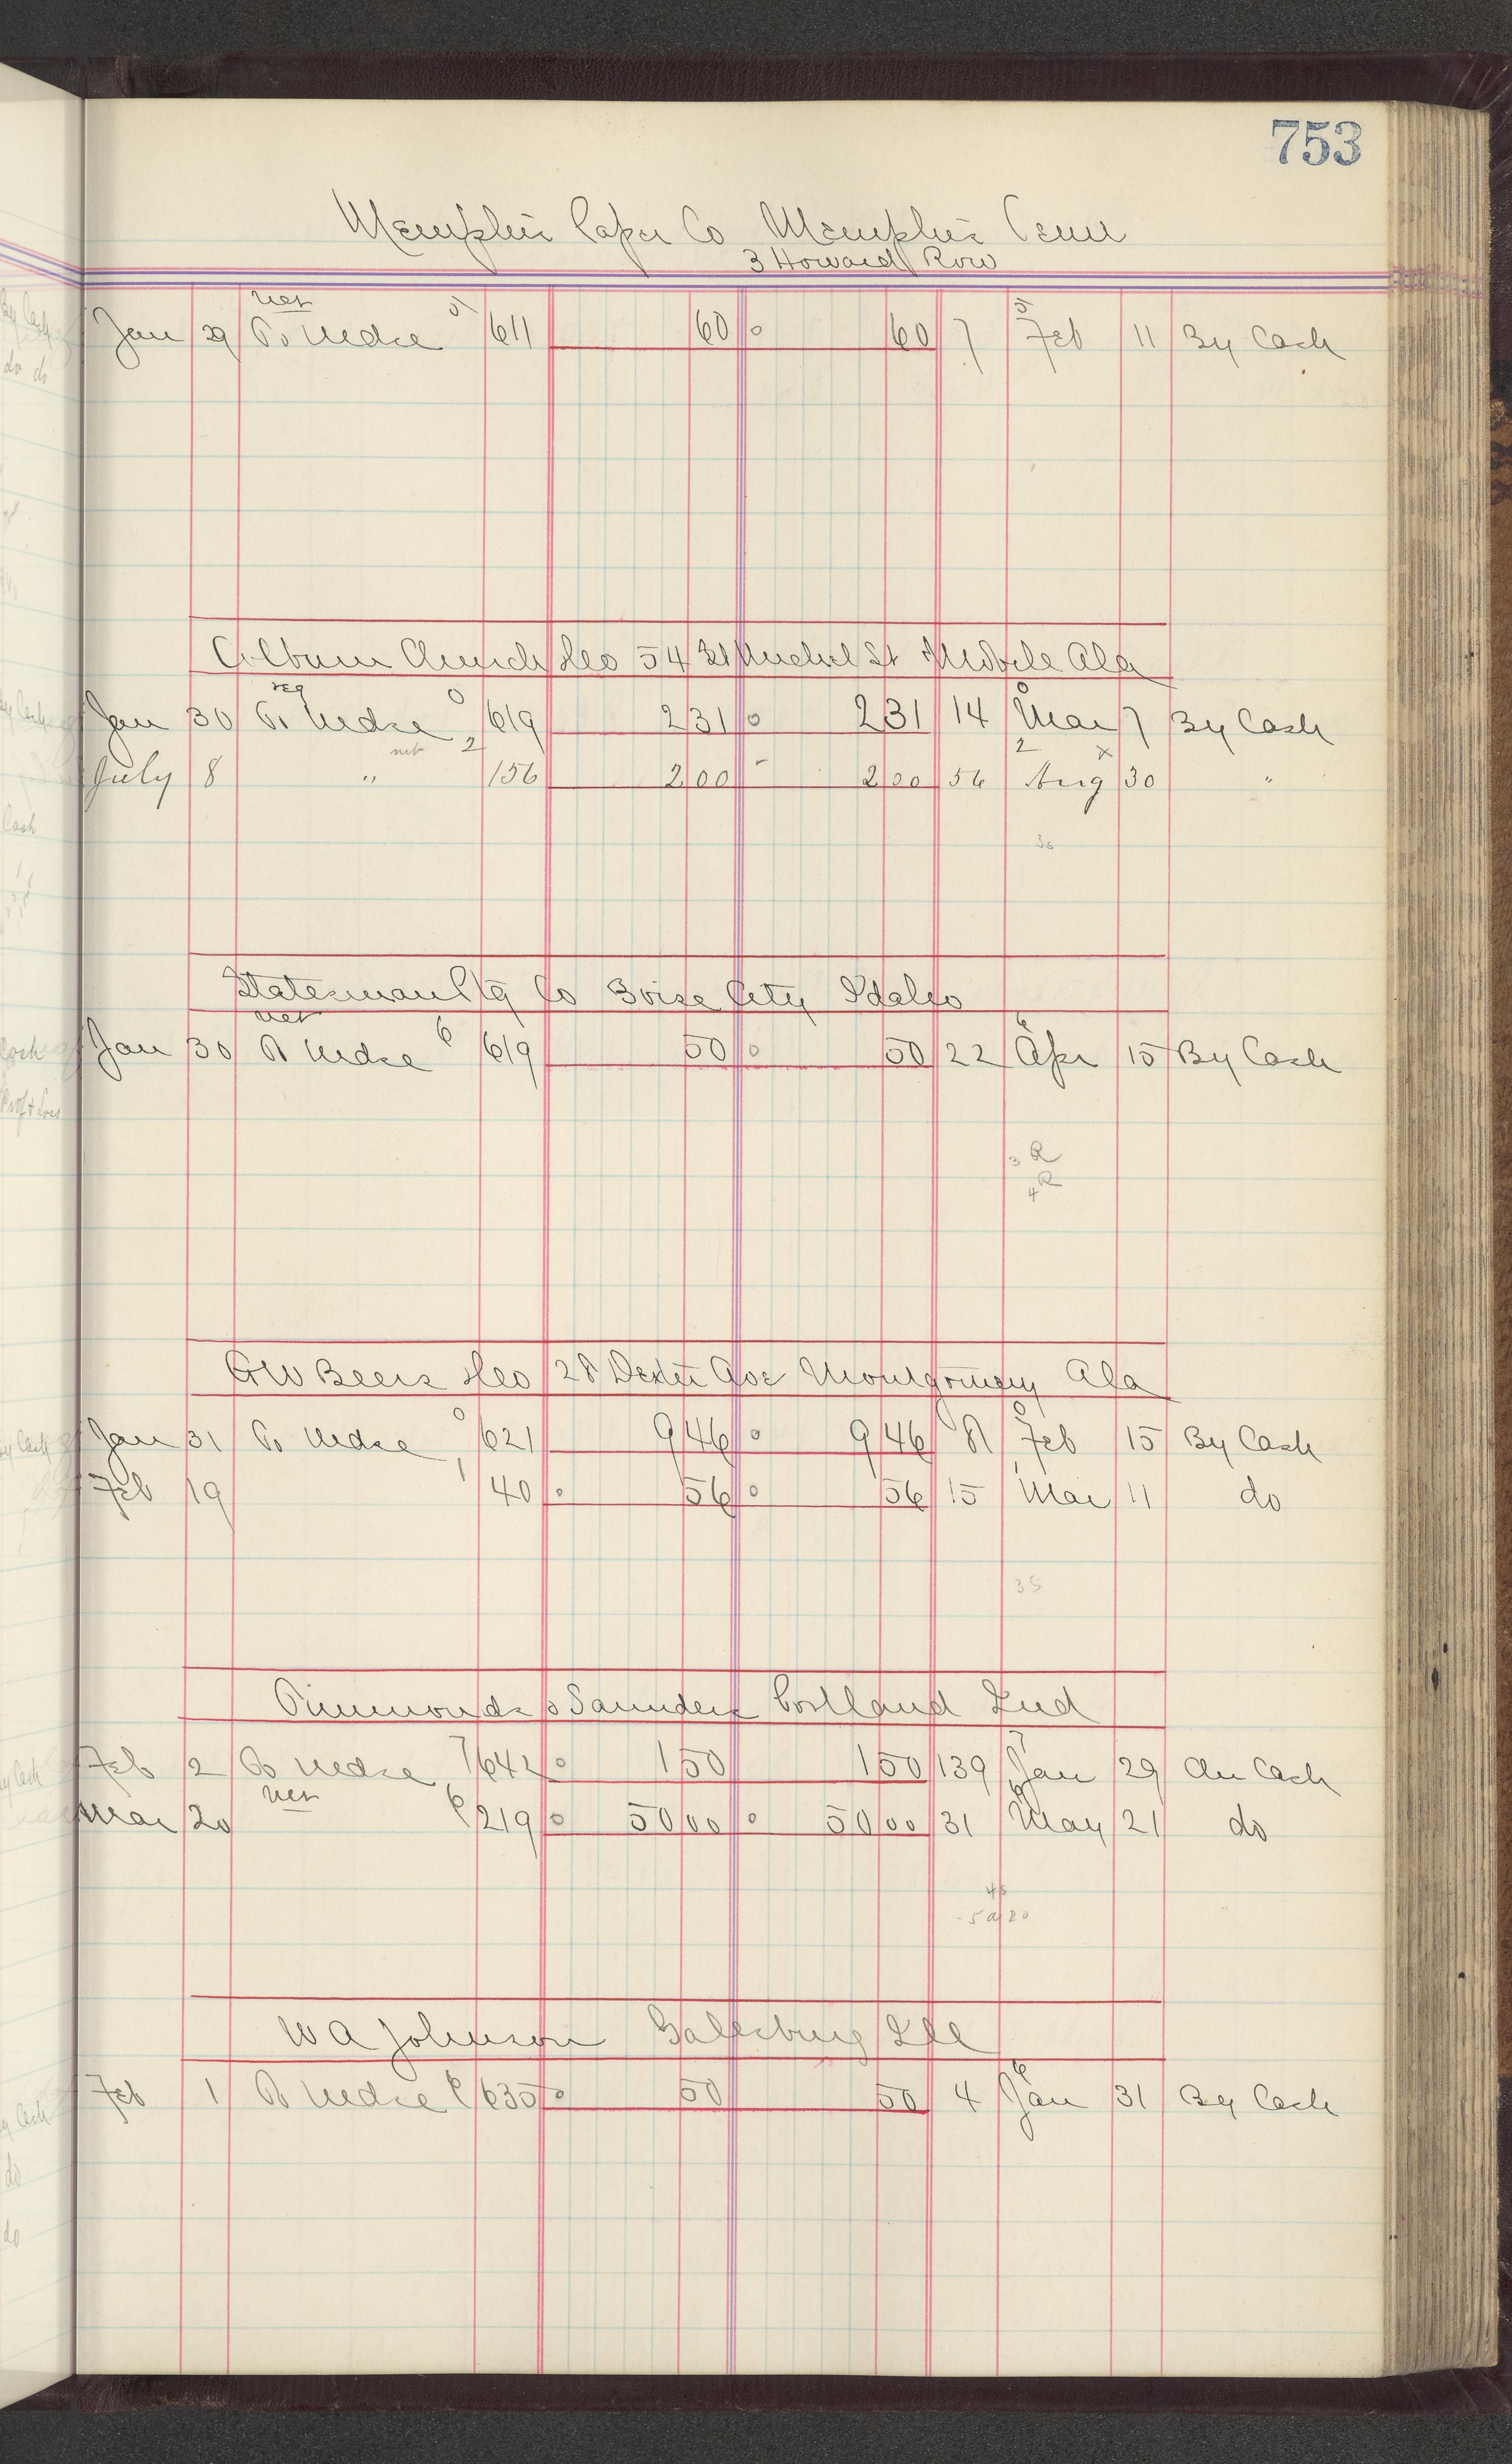 753
Memphis Paper Co Memphis Tenn
3 Howard Row
net 5 5
Jan 29 To Mdse 611 60 60 7 Feb 11 By Cash
Church 54 St Mobile Ala
reg 0 0
Jan 30 To Mdse 619 2 31 2 31 14 Mar 7 By Cash
net 2 2 x
July 8 " 156 2 00 2 00 56 Aug 30 "
Statesman Ptg Co Boise City Idaho
net 6 6
Jan 30 To Mdse 619 50 50 22 Apr 15 By Cash
3 R
4 R
G W Beers 28 Dexter Ave Montgomery Ala
0 0
Jan 31 To Mdse 621 9 46 9 46 Feb 15 By Cash
1 1
Feb 19 40 56 56 15 Mar 11 do
Saunders Portland Ind
7 7
Feb 2 To Mdse 642 1 50 1 50 139 Jan 29 Cash
net 6 6
Mar 20 219 50 00 50 00 31 May 21 do
W A Johnson Galesburg Ill
6 6
Feb 1 To Mdse 635 50 50 4 Jan 31 By Cash